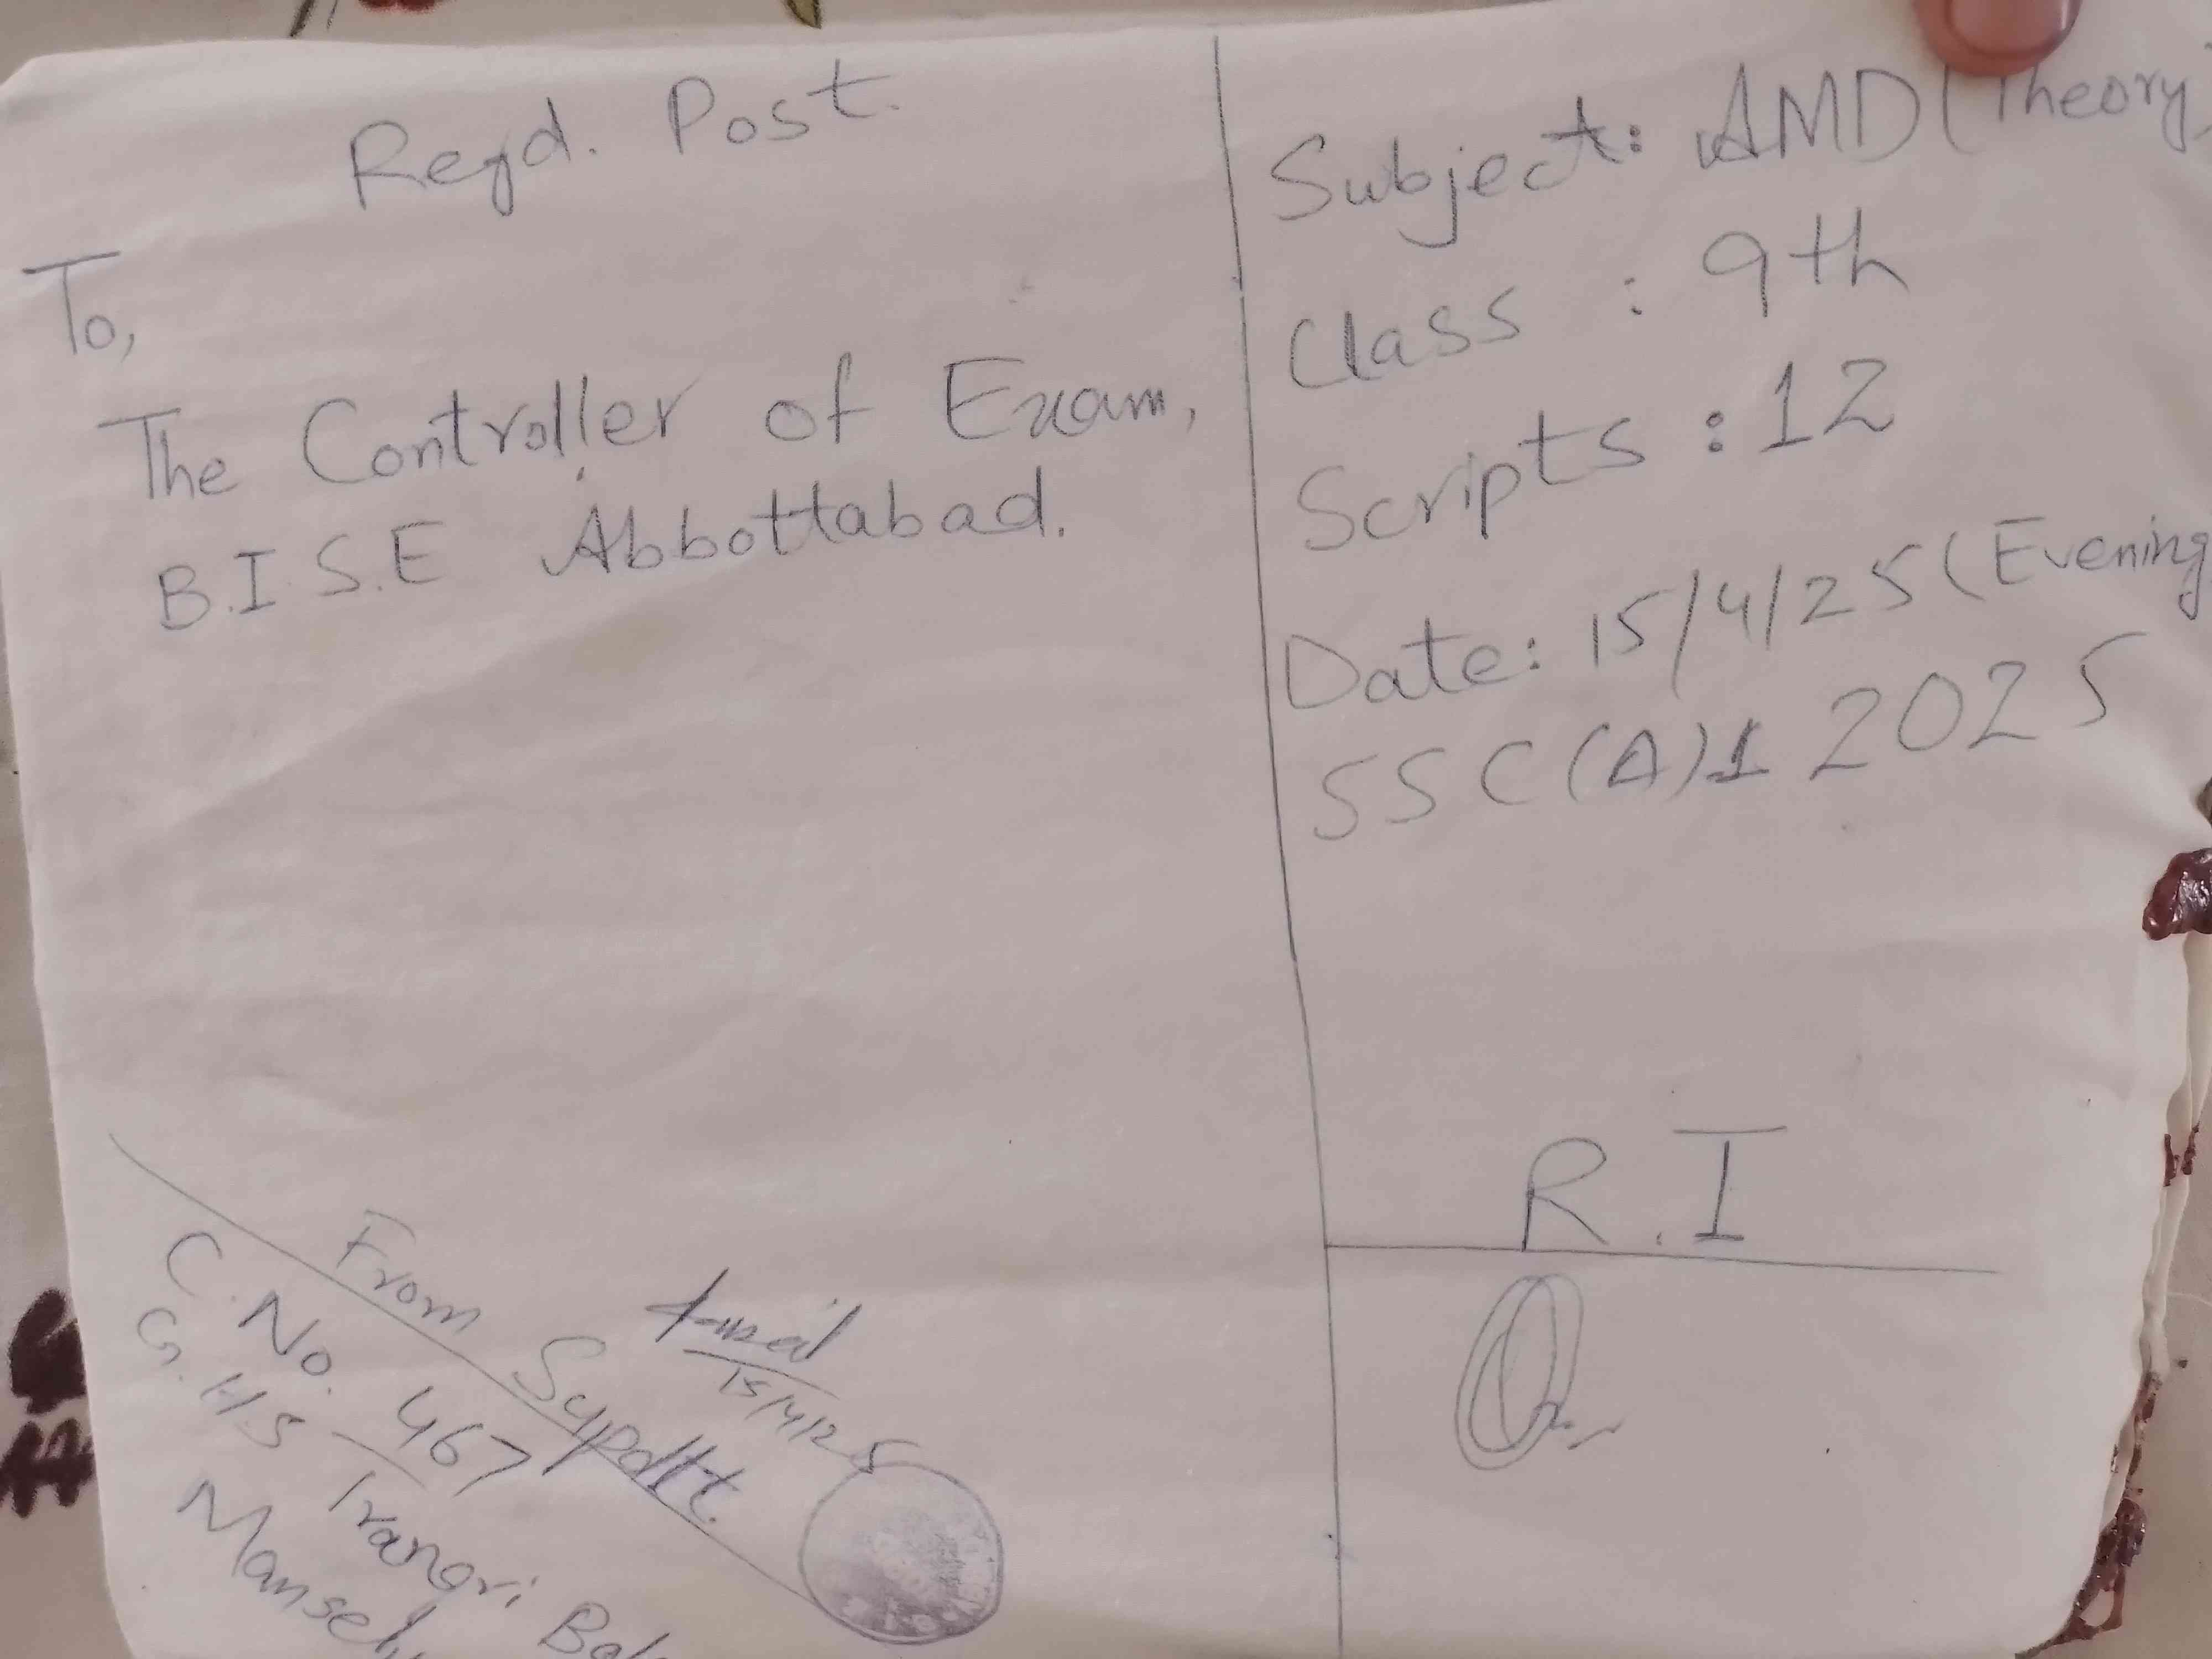 Regd. Post.
To,
The Controller of Exam,
B.I.S.E Abbottabad.
Subject: AMD (Theory)
Class : 9th
Scripts : 12
Date: 15/4/25 (Evening
SSC (A) 1 2025
R.I
From Supdtt.
15/4/25
C. No. 467
G.H.S Trangri